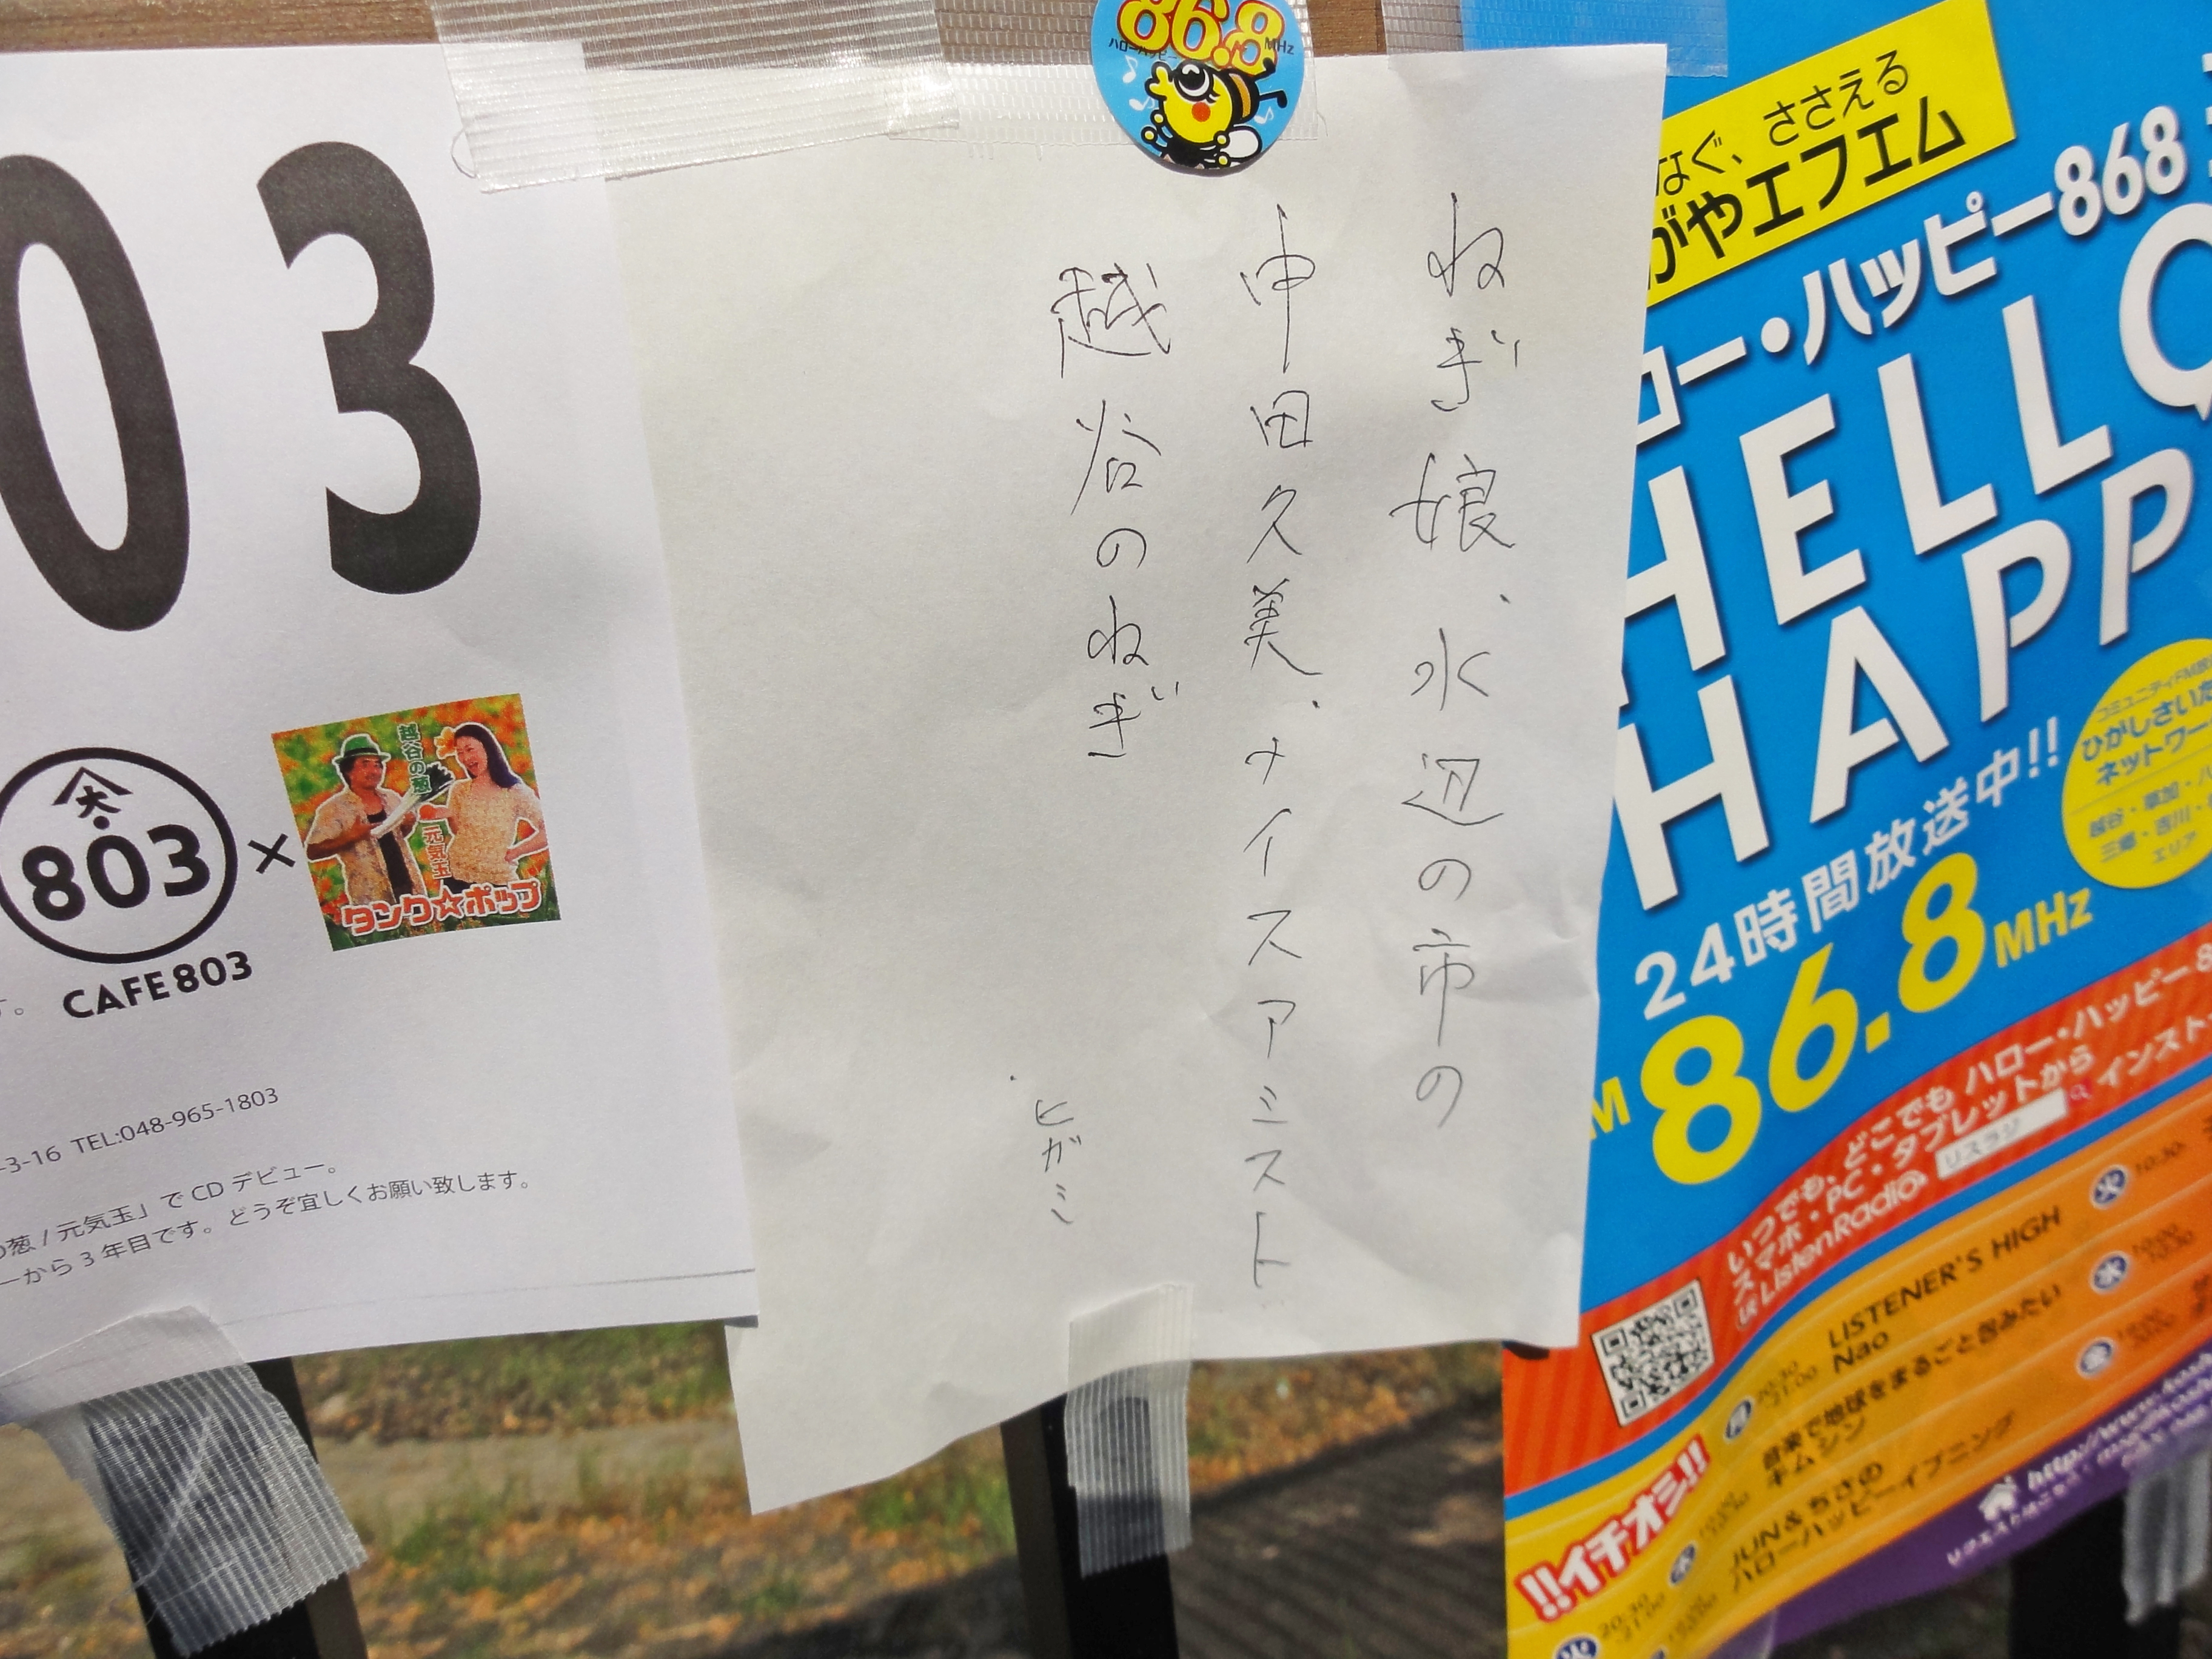 03
大
803
×
越谷の葱
元気玉
タンク☆ポップ
す。 CAFE803
-3-16 TEL:048-965-1803
の葱/元気玉」でCDデビュー。
ーから3年目です。どうぞ宜しくお願い致します。
86.8
MHz
ねぎ娘、水辺の市の
中田久美、ナイスアシスト
越谷のねぎ
ヒガシ
なぐ、ささえる
がやエフエム
ロー・ハッピー868
HELLO
HAPP
24時間放送中!!
86.8MHz
コミュニティFM放
ひがしさいた
ネットワー
越谷・草加・八
三郷・吉川・
エリア
いつでも、どこでも ハロー・ハッピー8
スマホ・PC・タブレットから
ListenRadio
リスラジ
インスト
!!イチオシ!!
月
20:30
21:00
LISTENER'S HIGH
Nao
音楽で地球をまるごと包みたい
キムシン
JUN&ちさの
ハローハッピーイブニング
火
10:30
水
10:00
10:30
金
火
20:30
21:00
http://www.